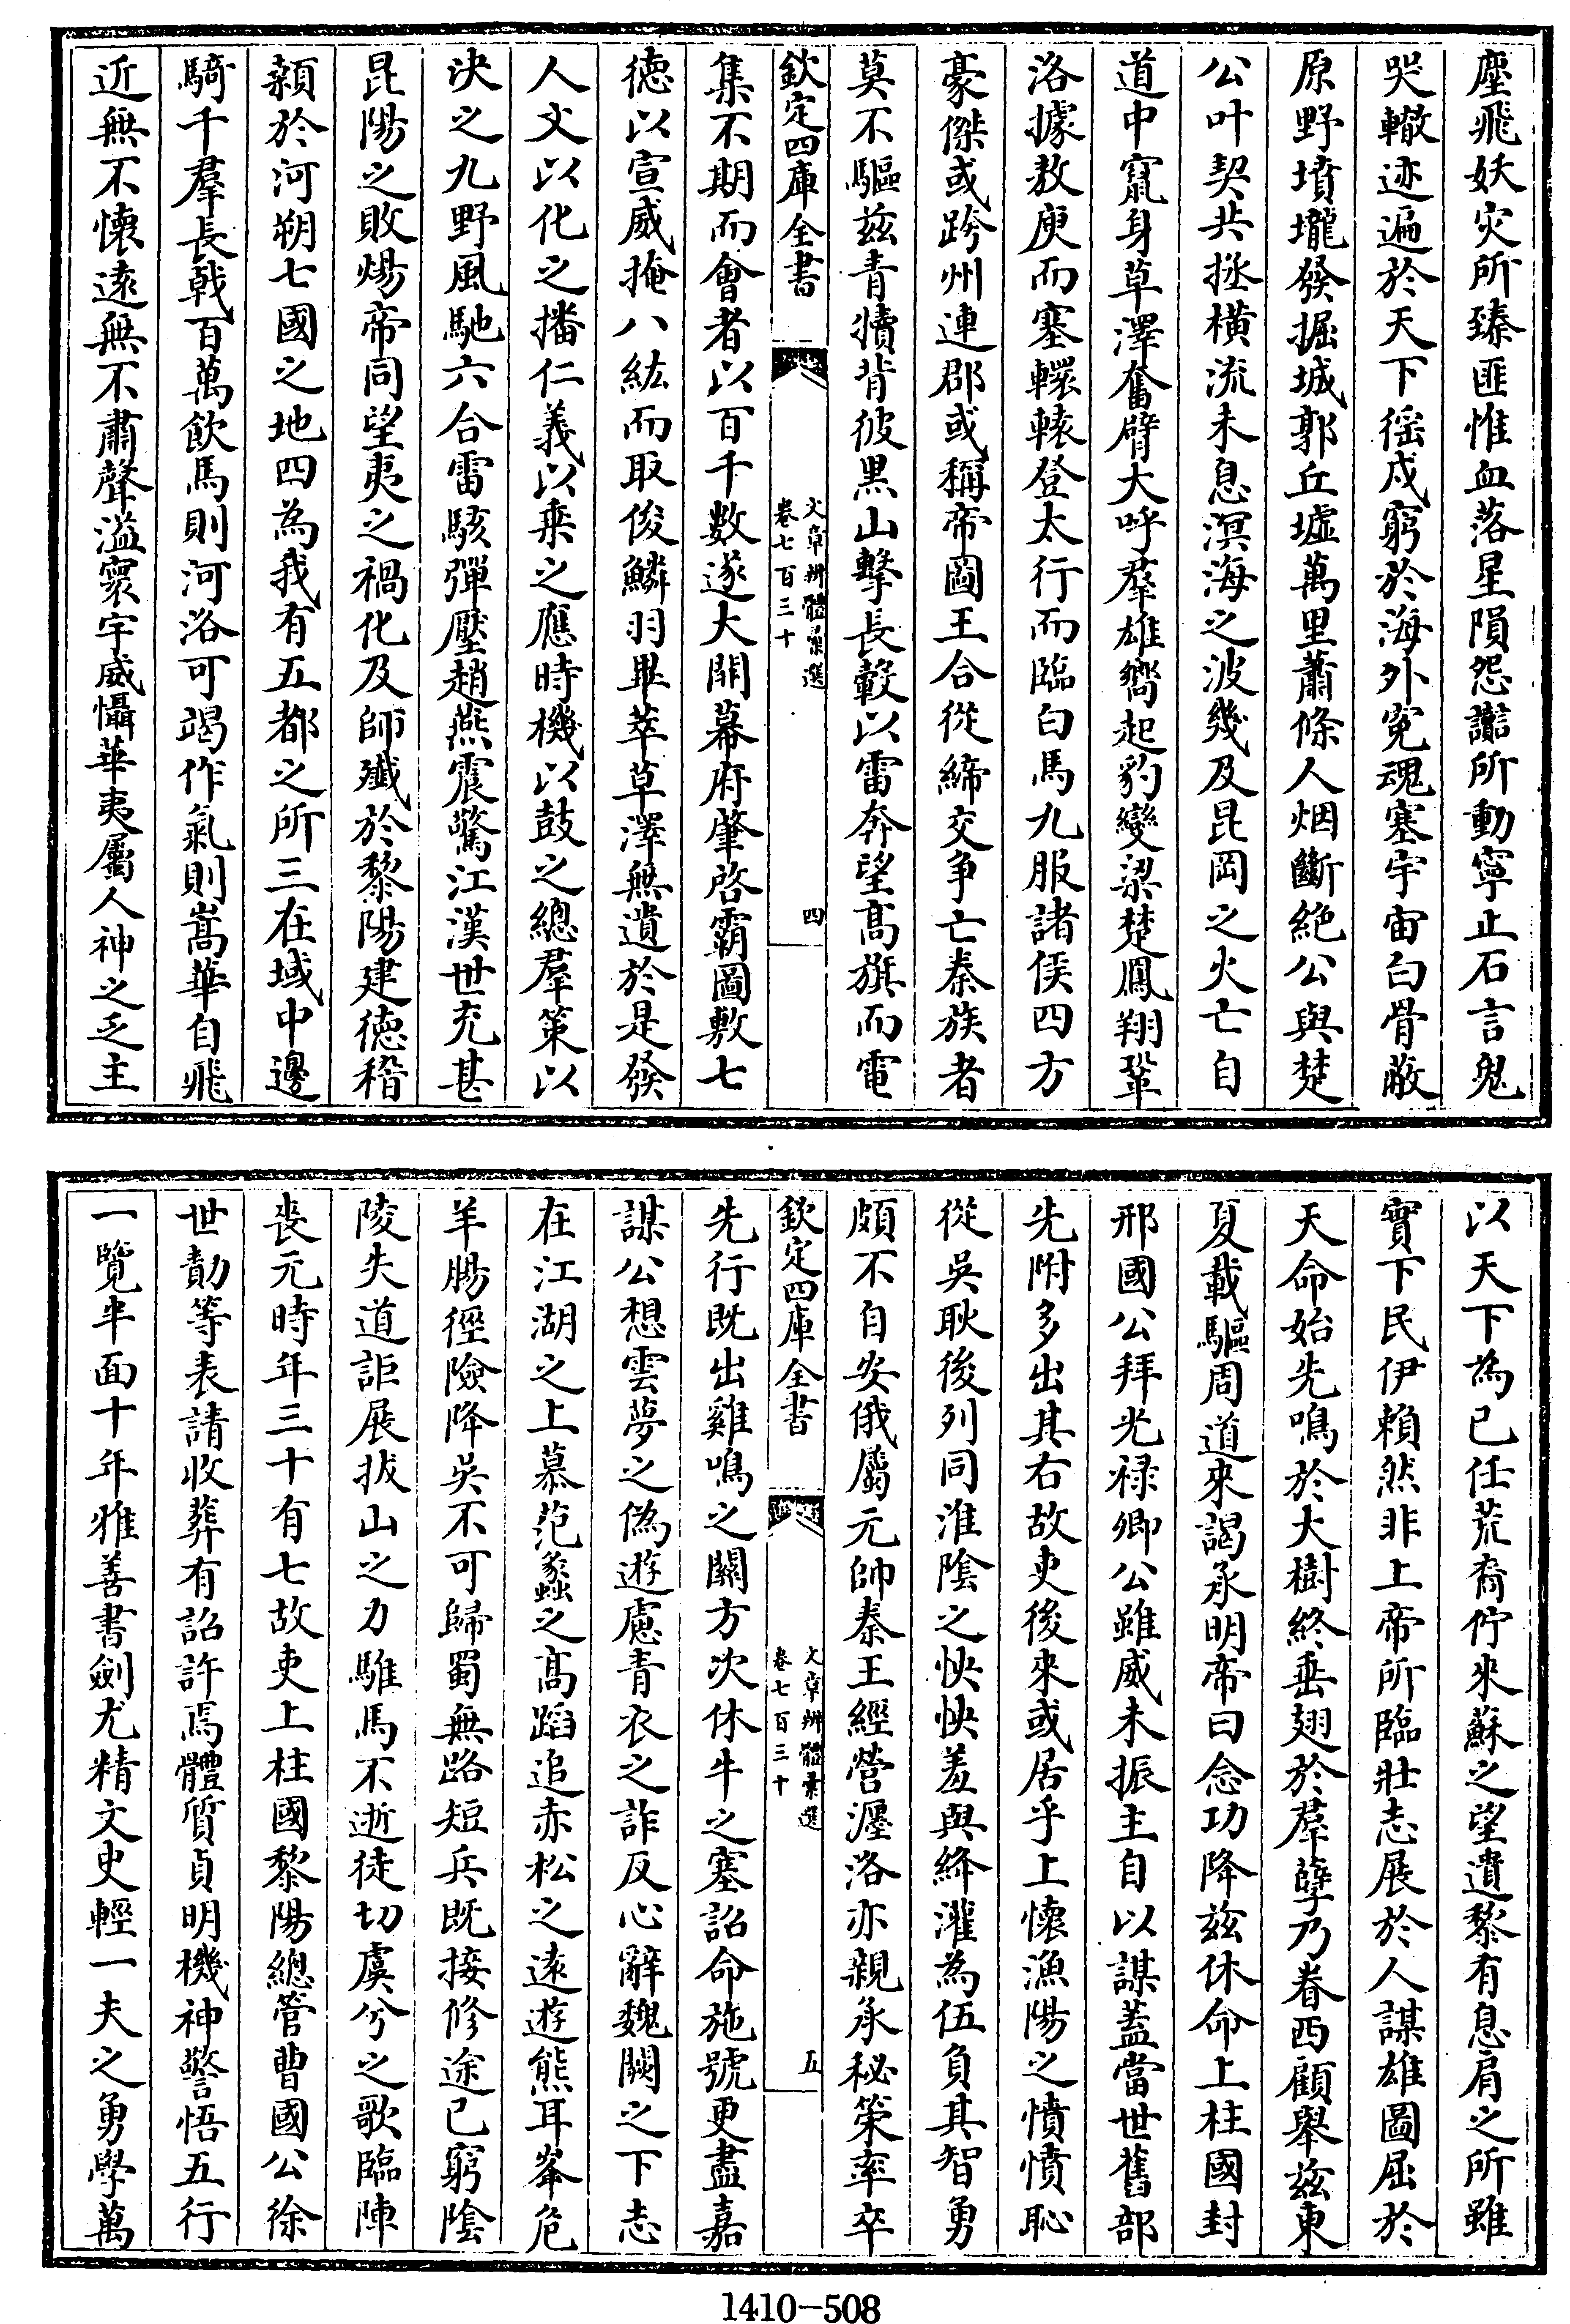 塵飛妖灾所臻匪惟血落星隕怨讟所動寧止石言鬼
哭轍迹遍於天下徭戍窮於海外寃魂塞宇宙白骨蔽
原野墳壠發掘城郭丘墟萬里蕭條人烟斷絶公與楚
公叶契共拯横流未息溟海之波幾及昆岡之火亡自
道中竄身草澤奮臂大呼羣雄嚮起豹變梁楚鳳翔鞏
洛據敖庾而塞轘轅登太行而臨白馬九服諸侯四方
豪傑或跨州連郡或稱帝圖王合從締交争亡秦族者
莫不驅兹青犢背彼黒山擊長轂以雷奔望髙旗而電
欽定四庫全書
文章辨體彚選
卷七百三十
四
集不期而會者以百千數遂大開幕府肇啓霸圖敷七
徳以宣威掩八紘而取俊鱗羽畢萃草澤無遺於是發
人文以化之播仁義以乗之應時機以鼓之總羣策以
决之九野風馳六合雷駭彈壓趙燕震驚江漢世充甚
昆陽之敗煬帝同望夷之禍化及師殱於黎陽建徳稽
顙於河朔七國之地四為我有五都之所三在域中邊
騎千羣長戟百萬飲馬則河洛可竭作氣則嵩華自飛
近無不懷逺無不肅聲溢寰宇威懾華夷屬人神之乏主
以天下為己任荒裔佇來蘇之望遺黎有息肩之所雖
實下民伊賴然非上帝所臨壯志展於人謀雄圖屈於
天命始先鳴於大樹終垂翅於羣孽乃眷西顧舉兹東
夏載驅周道來謁承明帝曰念功降兹休命上柱國封
邢國公拜光禄卿公雖威未振主自以謀蓋當世舊部
先附多出其右故吏後來或居乎上懷漁陽之憤憤恥
從吳耿後列同淮隂之怏怏羞與絳灌為伍負其智勇
頗不自安俄屬元帥秦王經營瀍洛亦親承秘策率卒
欽定四庫全書
文章辨體彚選
卷七百三十
五
先行既出雞鳴之關方次休牛之塞詔命施號更盡嘉
謀公想雲夢之偽遊慮青衣之詐反心辭魏闕之下志
在江湖之上慕范蠡之髙蹈追赤松之逺遊熊耳峯危
羊腸徑險降吳不可歸蜀無路短兵既接修途已窮隂
陵失道詎展拔山之力騅馬不逝徒切虞兮之歌臨陣
喪元時年三十有七故吏上柱國黎陽總管曹國公徐
世勣等表請收葬有詔許焉體質貞明機神警悟五行
一覽半面十年雅善書劍尤精文史輕一夫之勇學萬
1410-508